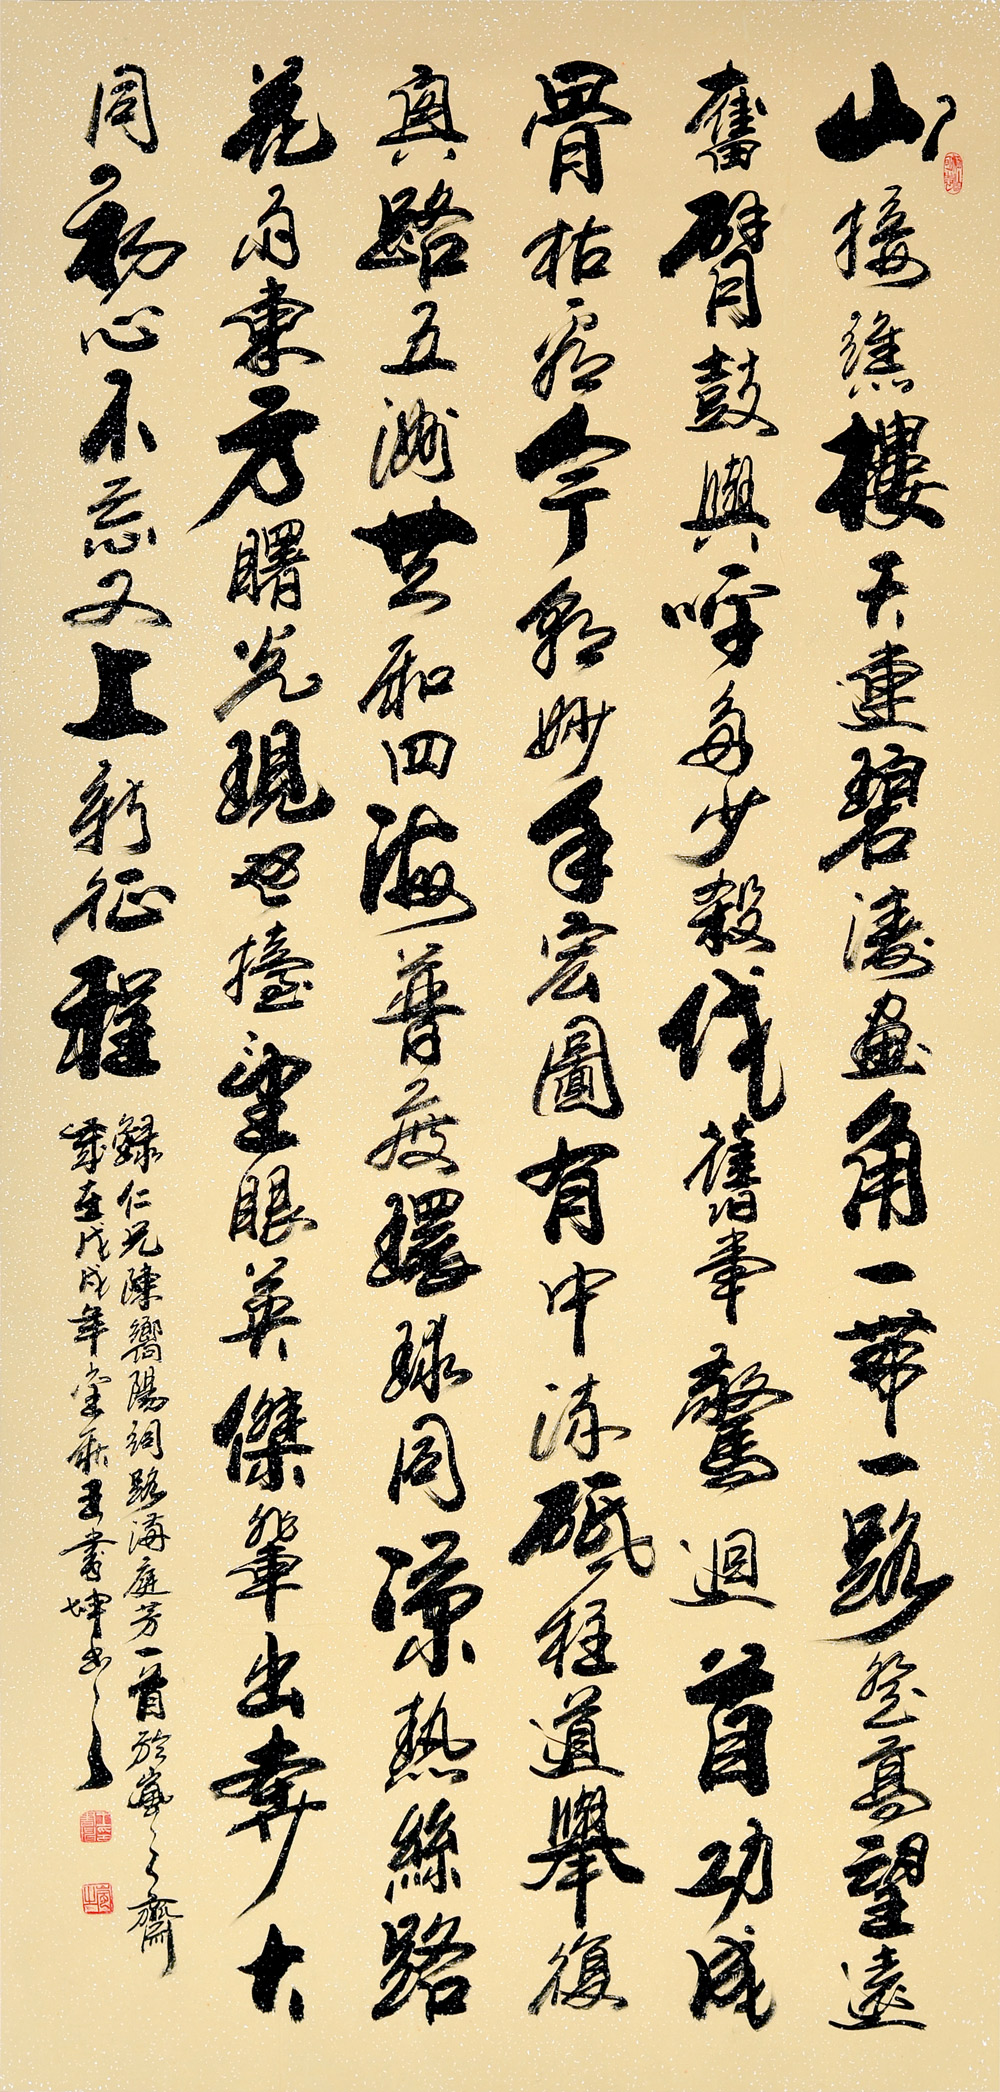 山接譙樓天連碧濤畫角一帶一路登高望遠
奮臂鼓與呼多少殺伐舊事驚迴首功成
骨枯處今朝妙手宏圖有中流砥柱道舉復
興路五洲共和四海普度環球同涼熱絲路
花雨東方曙光現世擡望眼英傑輩出奔大
同初心不忘又上新征程
錄仁兄陳嚮陽詞路滿庭芳一首於 之齋
歲在戊戌年 書坤書